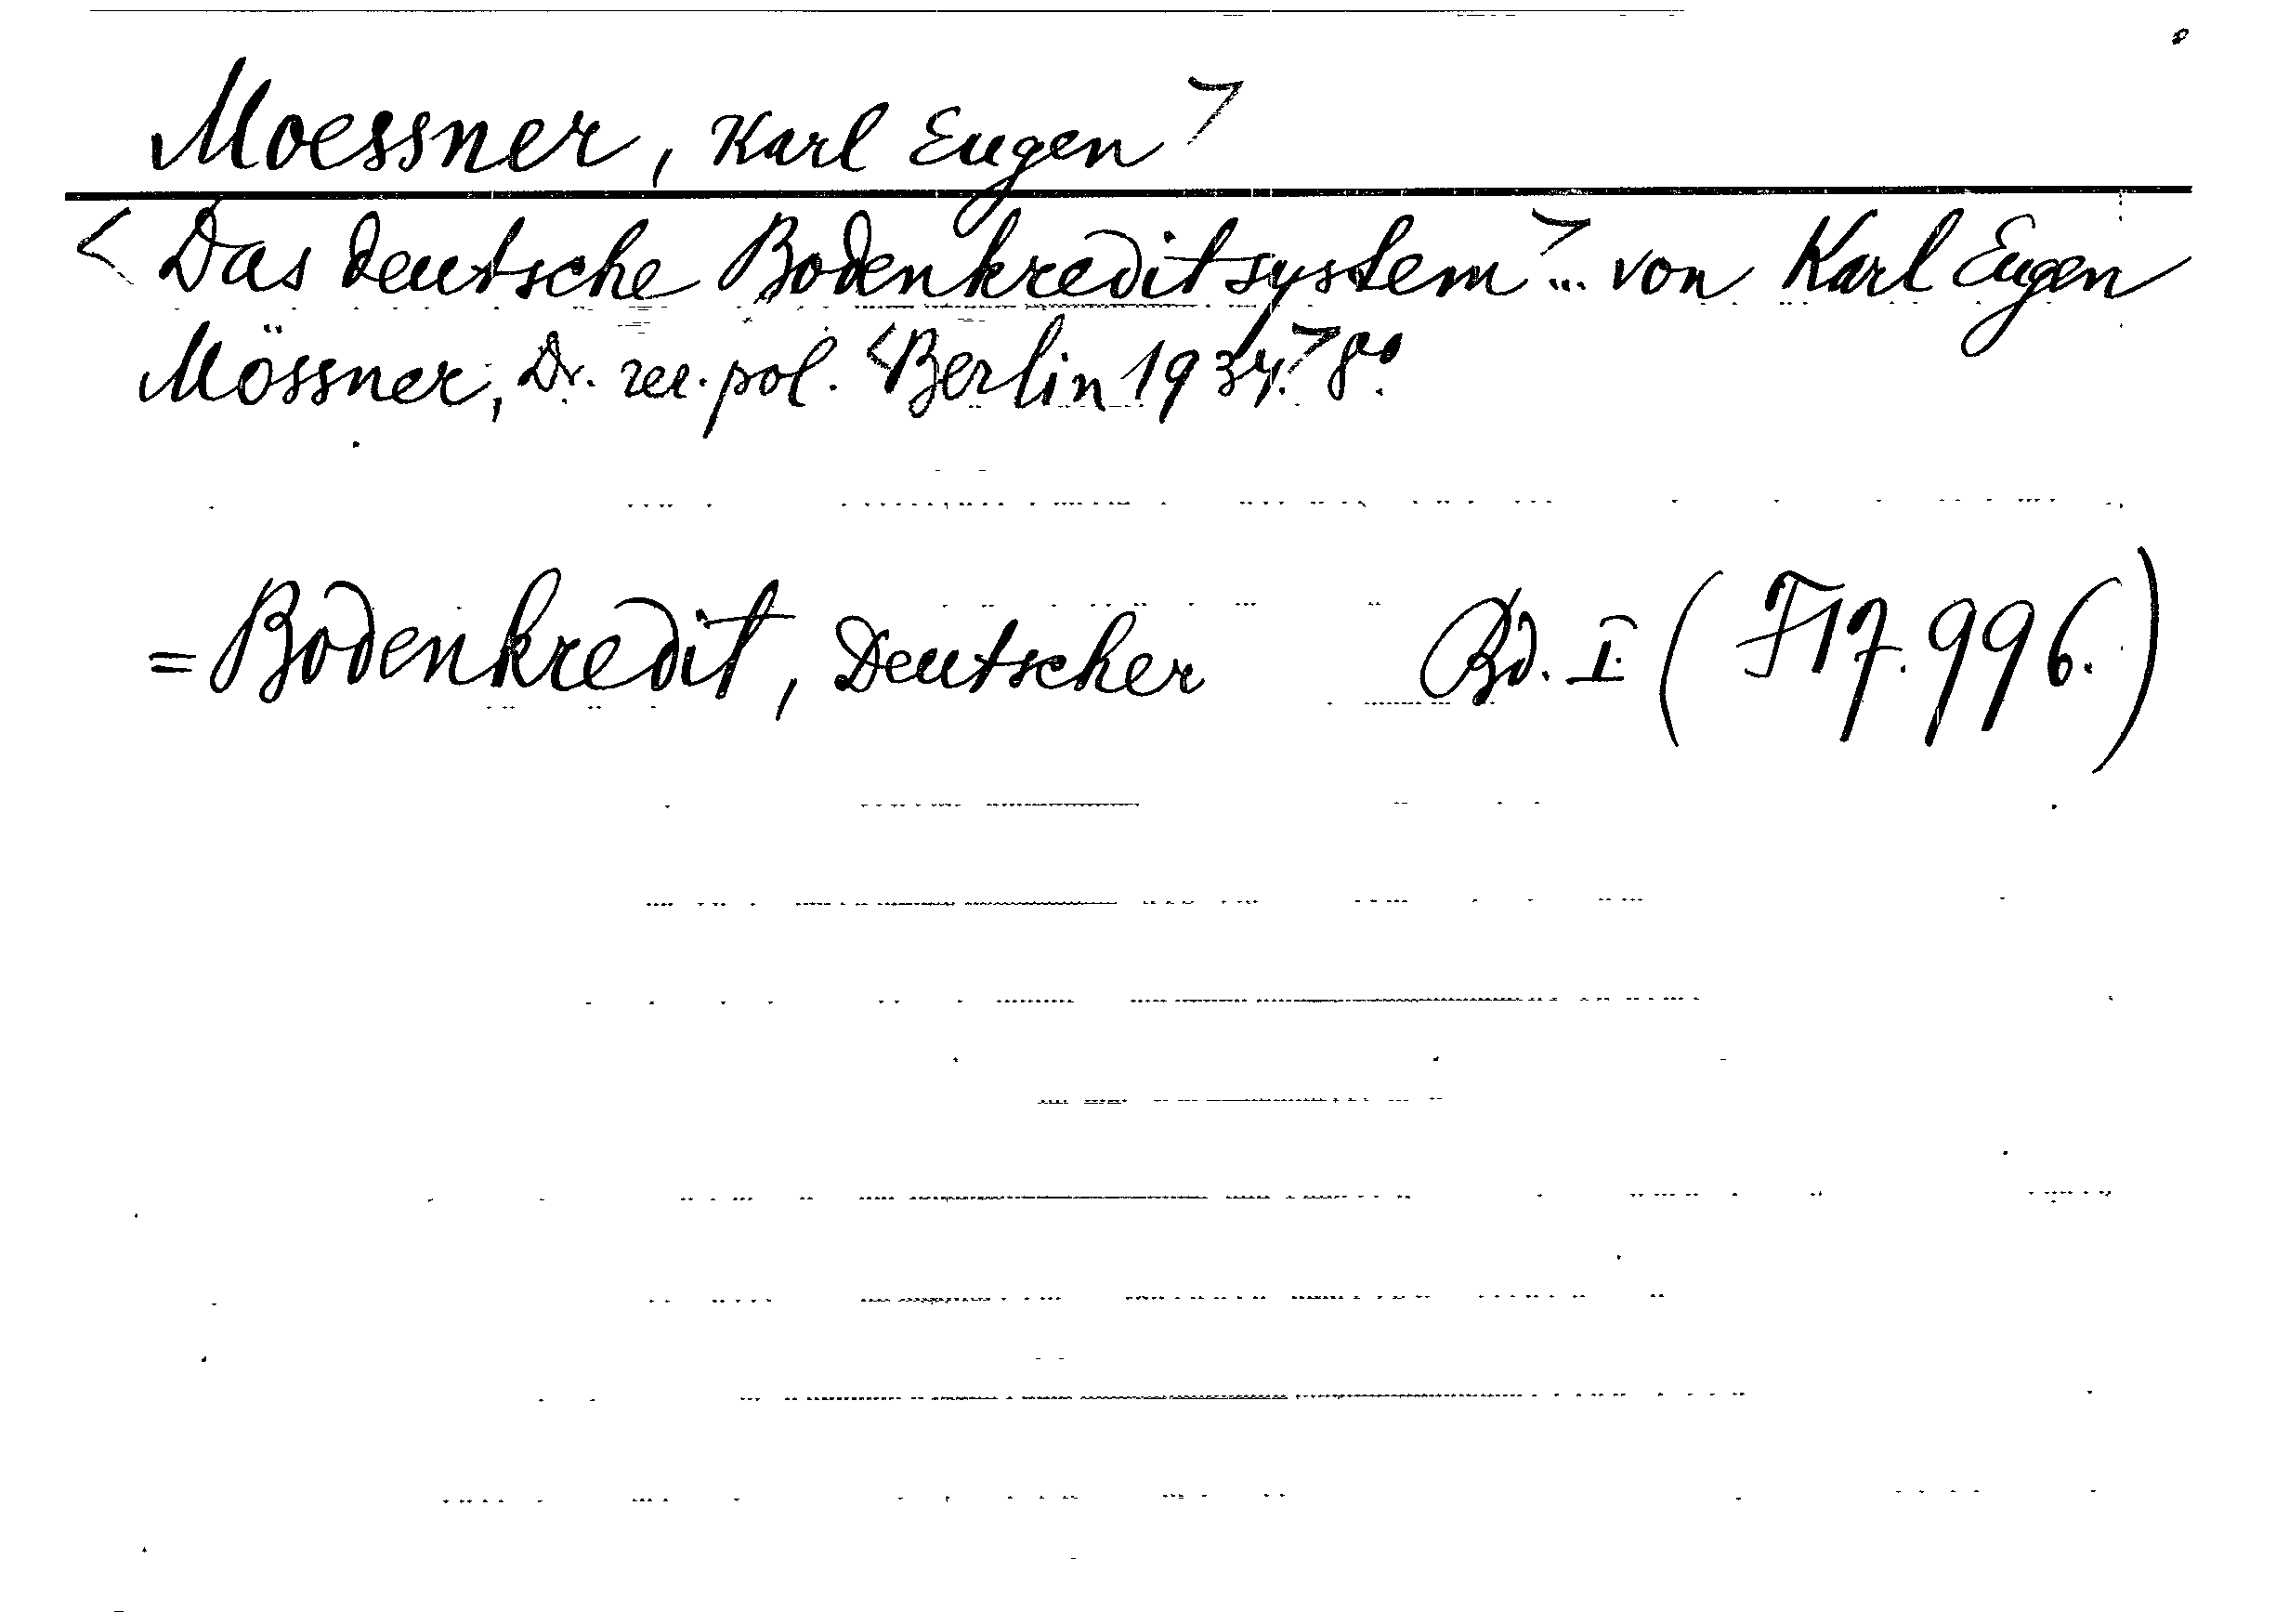 Moessner, Karl Eugen>
<Das deutsche Bodenkreditsystem>... von Karl Eugen
Mössner, Dr. rer. pol. <Berlin 1934.> 8°.
= Bodenkredit, Deutscher Bd. I. (F 17.996.)